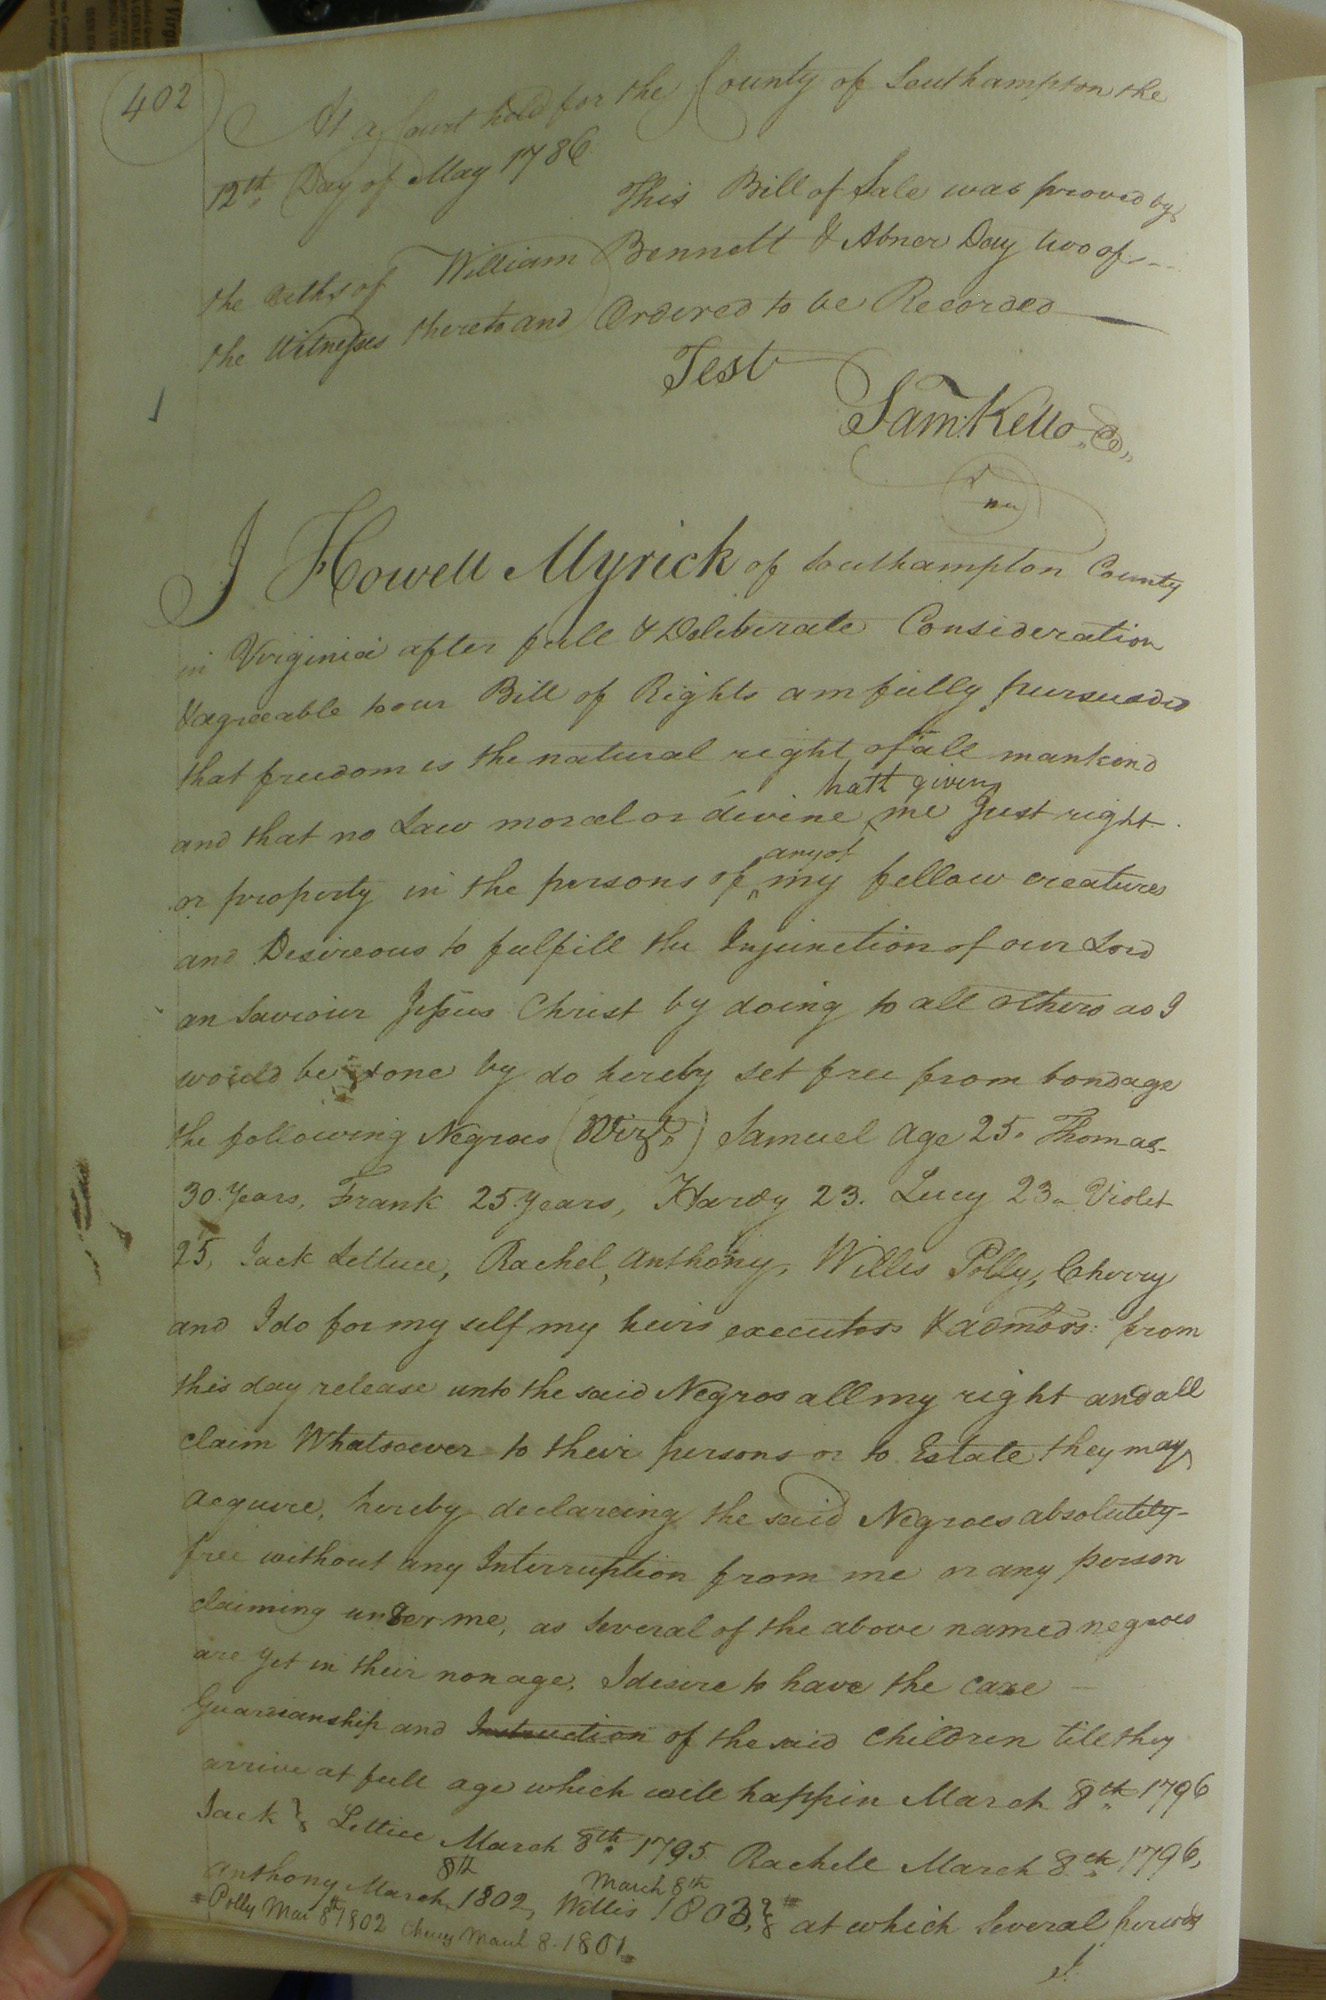 402
At a Court held for the County of Southampton the
12th Day of May 1786
This Bill of Sale was proved by
the oaths of William Bennett & Abner Day two of
the Witnesses thereto and Ordered to be Recorded
Test
Sam: Kello
I Howell Myrick of Southampton County
in Virginia after full & Deliberate Consideration
& agreeable to our Bill of Rights am fully pursuaded
that freedom is the natural right of all mankind
hath given
and that no Law moral or divine me Just right
any of
or property in the persons of my fellow creatures
and Desireous to fulfill the Injunction of our Lord
an Saviour Jesus Christ by doing to all others as I
would be done by do hereby set free from bondage
the following Negroes (Vizt.) Samuel age 25. Thomas
30 Years, Frank 25 Years, Hardy 23. Lucy 23. Violet
25, Jack Lettuce, Rachel, Anthony, Willis Polly, Cherry
and I do for my self my heirs executors & admors: from
this day release unto the said Negros all my right and all
claim Whatsoever to their persons or to Estate they may
acquire, hereby declareing the said Negroes absolutely
free without any Interruption from me or any person
claiming under me, as several of the above named negroes
are yet in their nonage, I desire to have the care
Guardianship and Instruction of the said Children till they
arrive at full age which will happin March 8th 1796
Jack & Lettice March 8th 1795 Rachell March 8th 1796,
8th March 8th
Anthony March 1802, Willis 1803, & at which several periods
Polly Mar 8th 1802 Cherry March 8. 1801